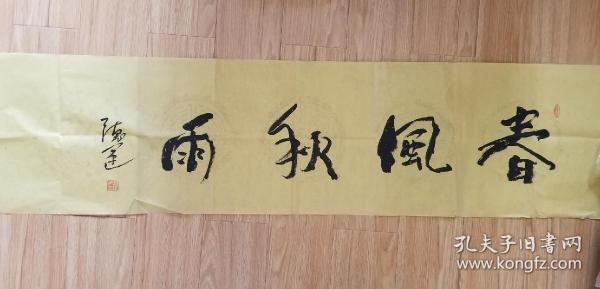 春風秋雨
孔夫子旧书网
www.kongfz.com